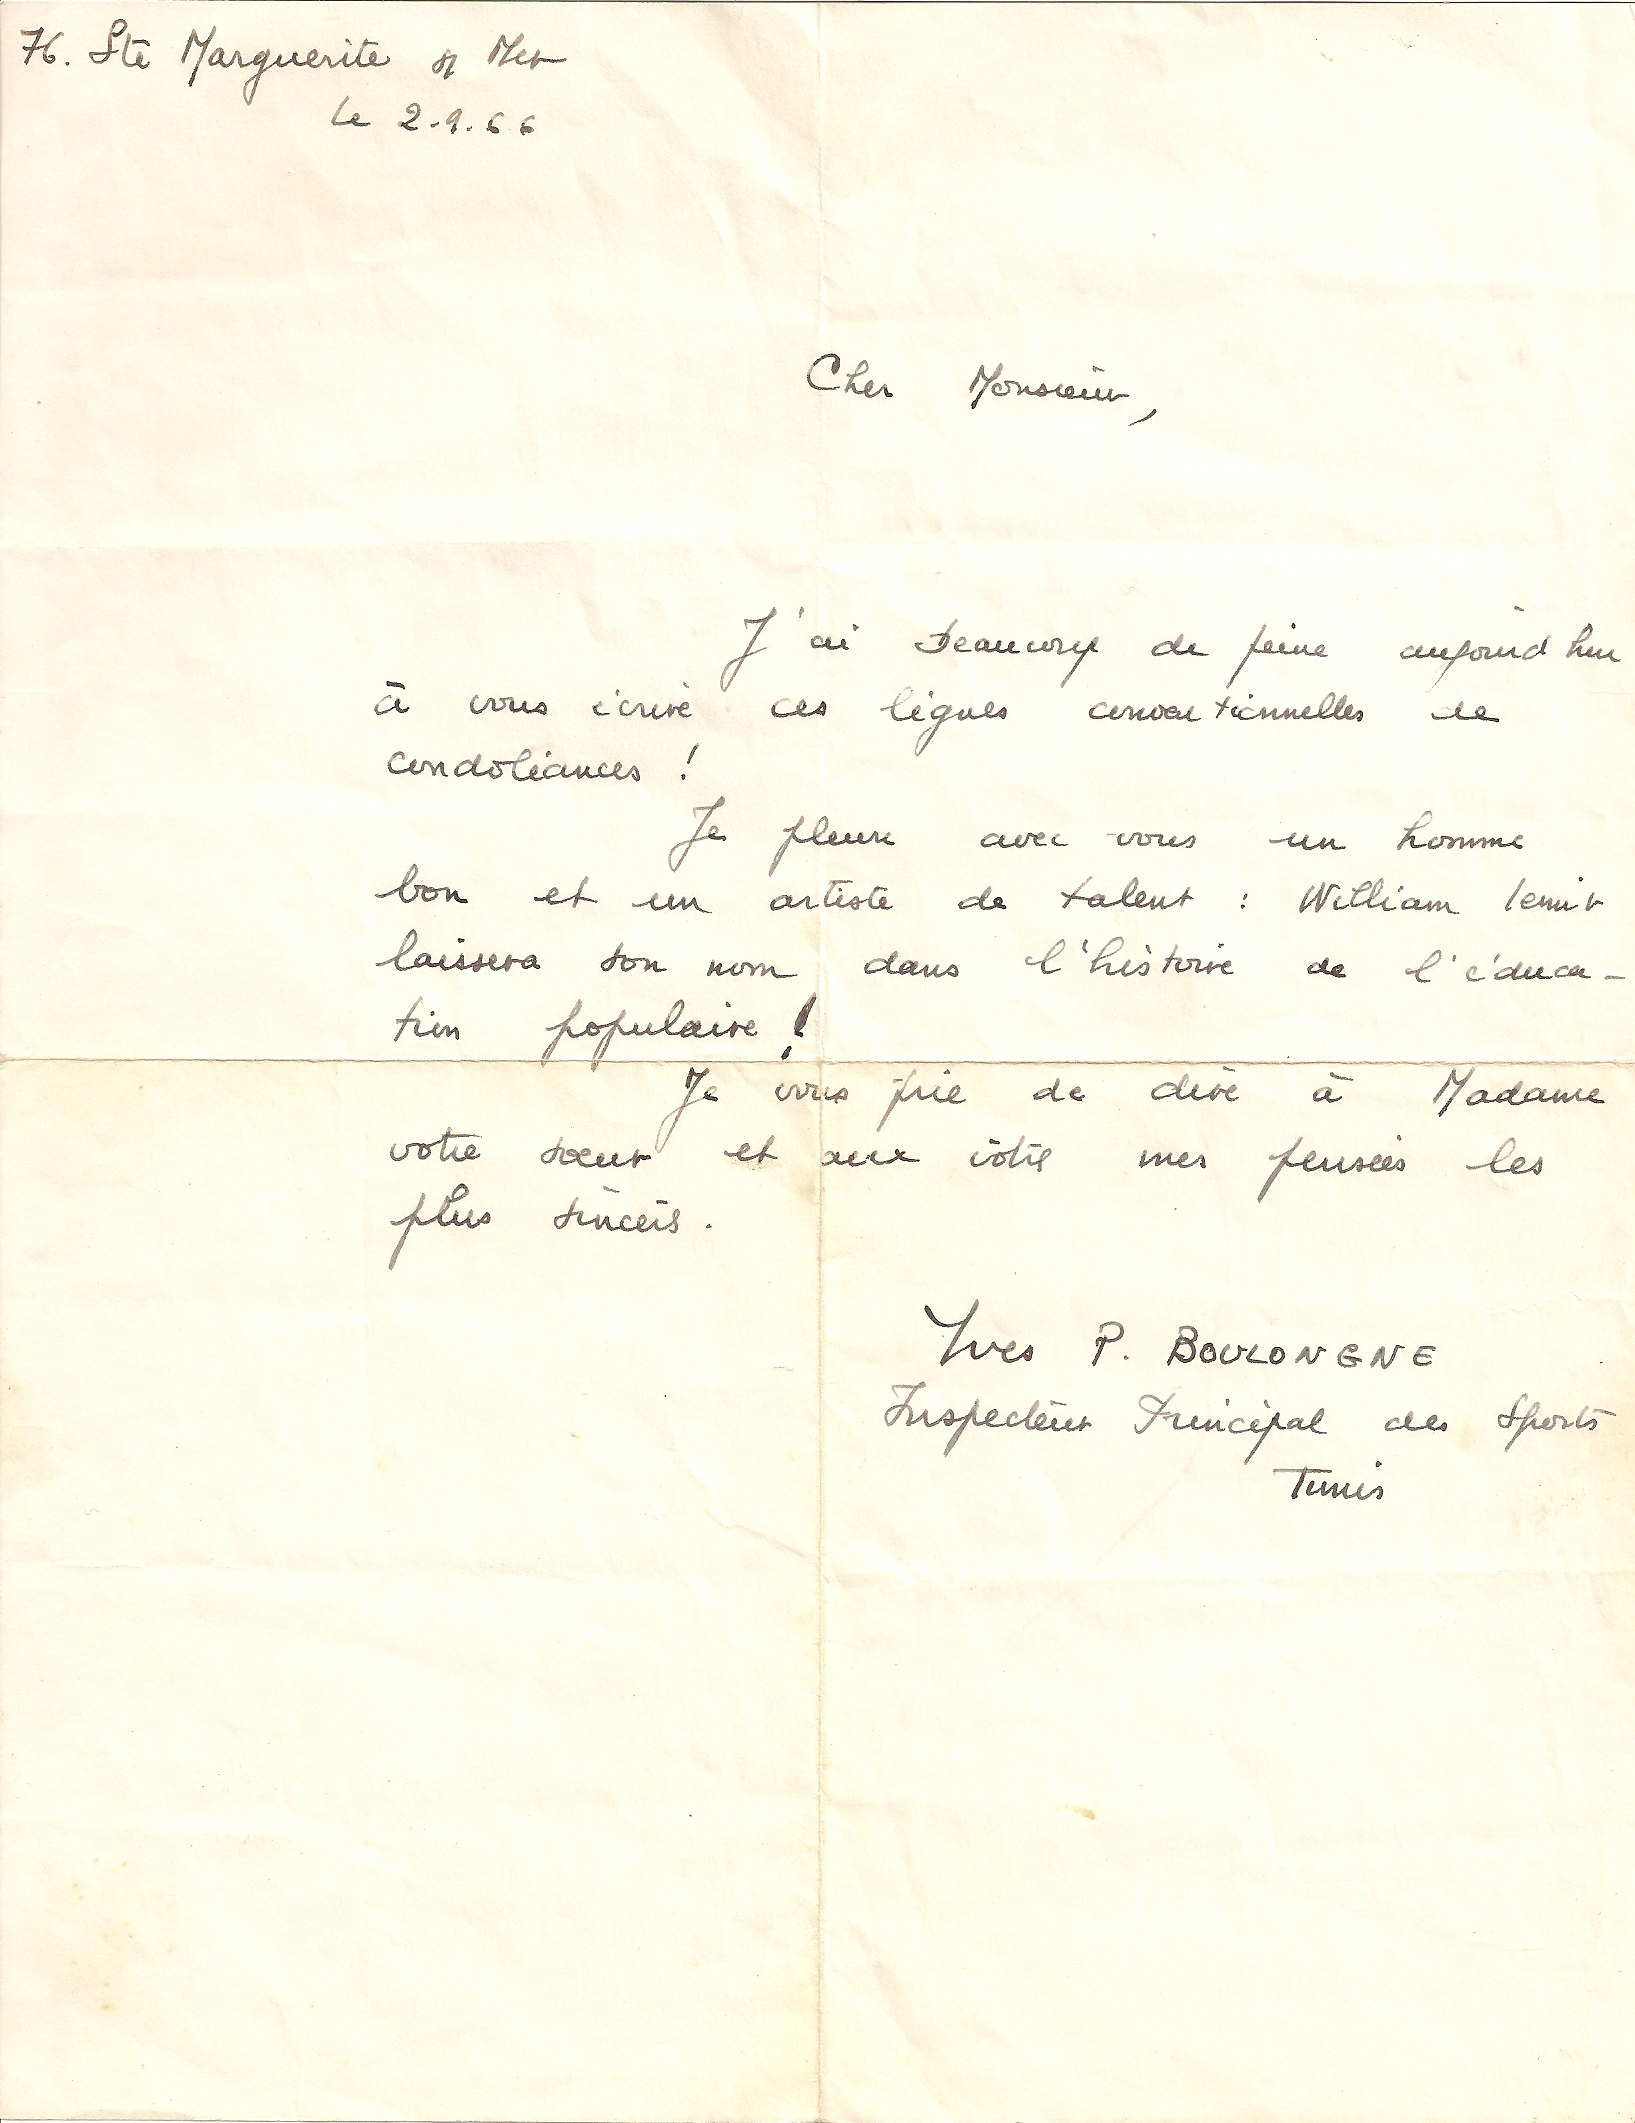 76. Ste Marguerite s/ Mer
le 2.9.66
Cher Monsieur,
J'ai beaucoup de peine aujourd'hui
à vous écrire ces lignes conventionnelles de
condoléances !
Je pleure avec vous un homme
bon et un artiste de talent : William Lemit
laissera son nom dans l'histoire de l'éduca-
tion populaire !
Je vous prie de dire à Madame
votre sœur et aux vôtres mes pensées les
plus sincères.
Yves P. BOULONGNE
Inspecteur Principal des Sports
Tunis